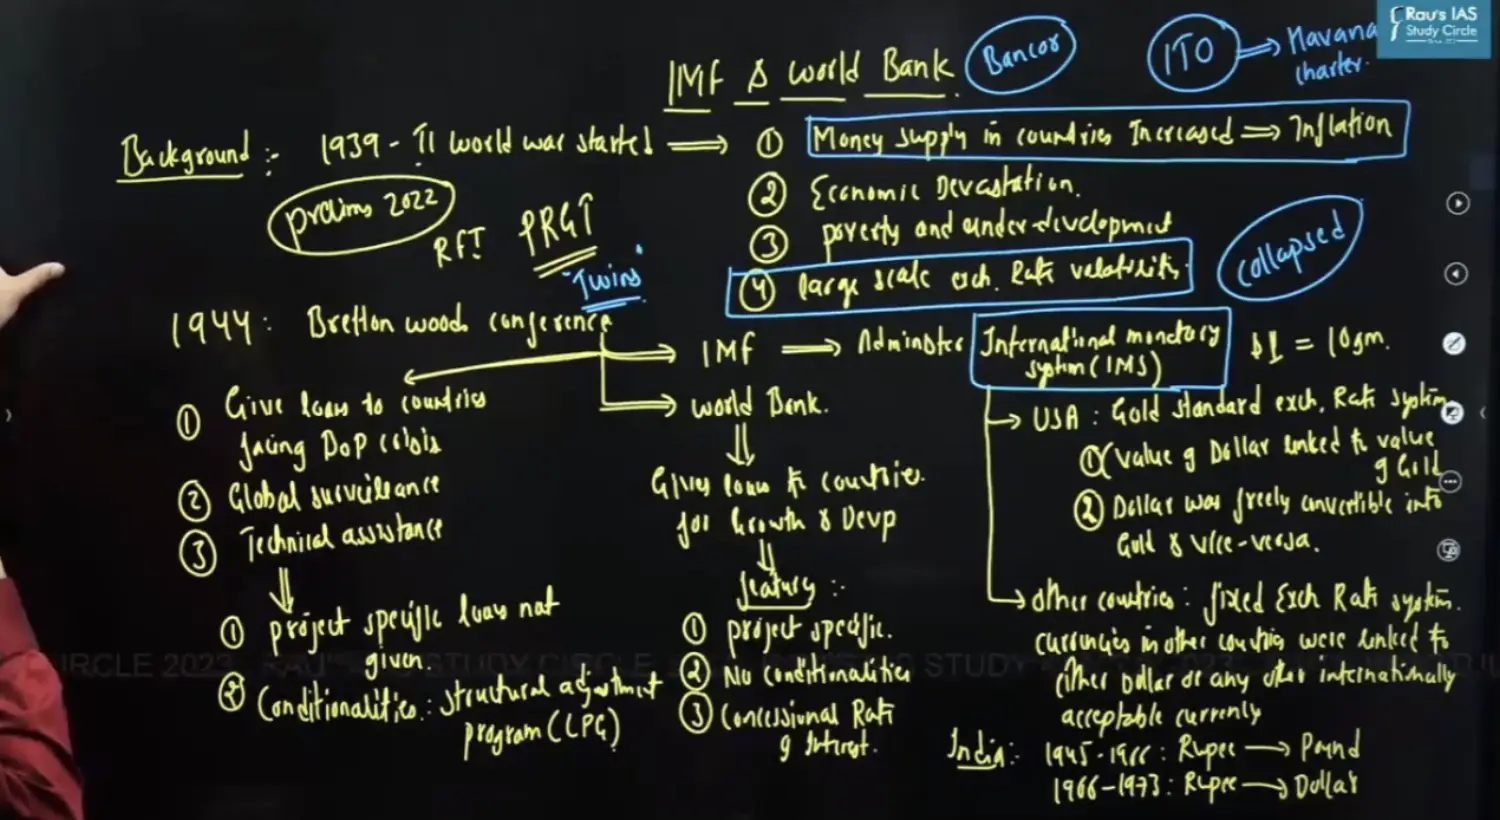 Rau's IAS
Study Circle
IMF & World Bank
Bancor
ITO ⇒ Havana
charter.
Background :- 1939 - II world war started ⇒
① Money supply in countries Increased ⇒ Inflation
② Economic Devastation.
③ poverty and under-development
④ large scale exch. Rate volatility.
Collapsed
prelims 2022
RFI PRGT
"Twins"
1944: Bretton woods conference
① Give loans to countries
facing BoP crisis
② Global surveillance
③ Technical assistance
① project specific loans not
given.
② Conditionalities: structural adjustment
program (LPG)
IMF ⇒ Administer International monetary
system (IMS)
$1 = 10gm.
World Bank.
Gives loans to countries.
for Growth & Devp
features :-
① project specific.
② No conditionalities
③ Concessional Rate
of Interest.
USA : Gold standard exch. Rate system
① Value of Dollar linked to value
of Gold
② Dollar was freely convertible into
Gold & vice-versa.
other countries: fixed Exch Rate system.
currencies in other countries were linked to
either Dollar or any other internationally
acceptable currency
India:- 1945-1966: Rupee → Pound
1966-1973: Rupee → Dollar
CIRCLE 2023 RAU'S IAS STUDY CIRCLE